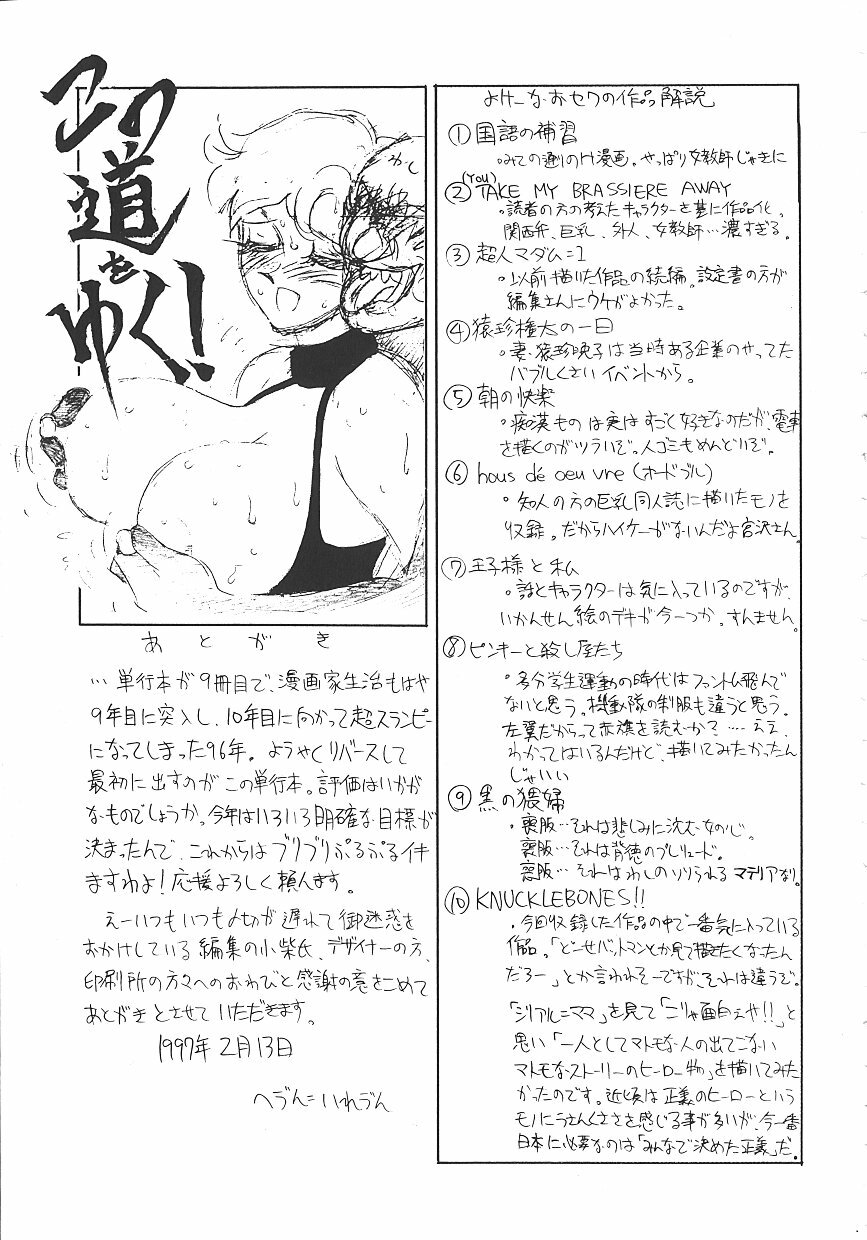 この
道
を
ゆく!
あとがき
…単行本が9冊目で、漫画家生活もはや
9年目に突入し、10年目に向かって超スランピー
になってしまった96年。ようやくリバースして
最初に出すのがこの単行本。評価はいかが
なものでしょうか。今年はいろいろ明確な目標が
決まったんで、これからはブリブリぷるぷるイキ
ますわよ!応援よろしく頼んます。
えーいつもいつも〆切が遅れて御迷惑を
おかけしている編集の小柴氏、デザイナーの方、
印刷所の方々へのおわびと感謝の意をこめて
あとがきとさせていただきます。
1997年2月13日
へづん=いれづん
よけーなおセワの作品解説
①国語の補習
・みての通りのH漫画。やっぱり女教師じゃきに
(You)
②TAKE MY BRASSIERE AWAY
・読者の方の考えたキャラクターを基に作品化。
関西弁、巨乳、外人、女教師…濃すぎる。
③超人マダム=1
・以前描いた作品の続編。設定書の方が
編集さんにウケがよかった。
④猿珍権太の一日
・妻・猿珍映子は当時ある企業のやってた
バブルくさいイベントから。
⑤朝の快楽
・痴漢ものは実はすごく好きなのだが、電車
を描くのがツライぞ。人ゴミもめんどいぞ。
⑥hous de oeuvre(オードブル)
・知人の方の巨乳同人誌に描いたモノを
収録。だからハイケーがないんだよ宮沢さん。
⑦王子様と私
・話とキャラクターは気に入っているのですが、
いかんせん絵のデキが今一つか。すんません。
⑧ピンキーと殺し屋たち
・多分学生運動の時代はファントム飛んで
ないと思う。機動隊の制服も違うと思う。
左翼だからって赤旗を読むか?…ええ、
わかってはいるんだけど、描いてみたかったん
じゃいい
⑨黒の猥婦
・喪服…それは悲しみに沈む女の心。
喪服…それは背徳のプレリュード。
喪服…それはわしのソソられるマテリアなり。
⑩KNUCKLEBONES!!
・今回収録した作品の中で一番気に入っている
作品。「どーせバットマンとか見て描きたくなったん
だろー」とか言われそーですが、それは違うぞ。
「シリアル=ママ」を見て「こりゃ面白えや!!」と
思い「一人としてマトモな人の出てこない
マトモなストーリーのヒーロー物」を描いてみた
かったのです。近頃は正義のヒーローという
モノにうさんくささを感じる事が多いが、今一番
日本に必要なのは「みんなで決めた正義」だ。